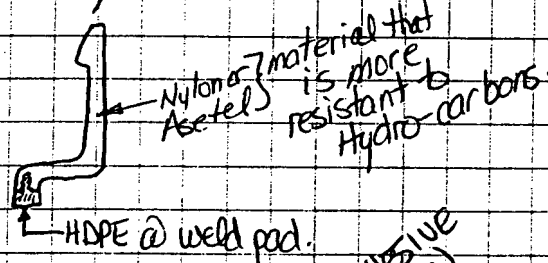 Nylon or } material that
Asetel } is more
resistant to
Hydro-carbons
HDPE @ weld pad.